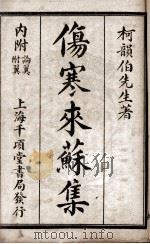 柯韻伯先生著
傷寒來蘇集
內附論翼附翼
上海千頃堂書局發行